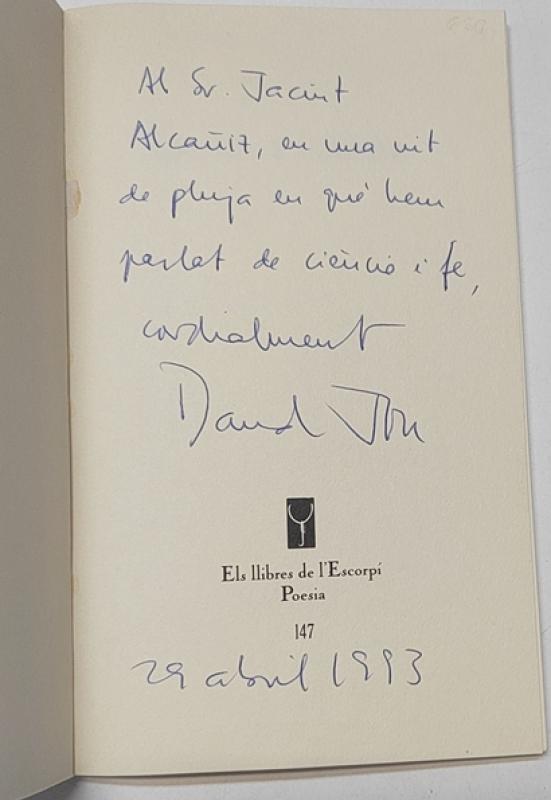 Al Sr. Jacint
Alcañiz, en una nit
de pluja en què hem
parlat de ciència i fe,
cordialment
David Jou
Els llibres de l'Escorpí
Poesia
147
29 abril 1993